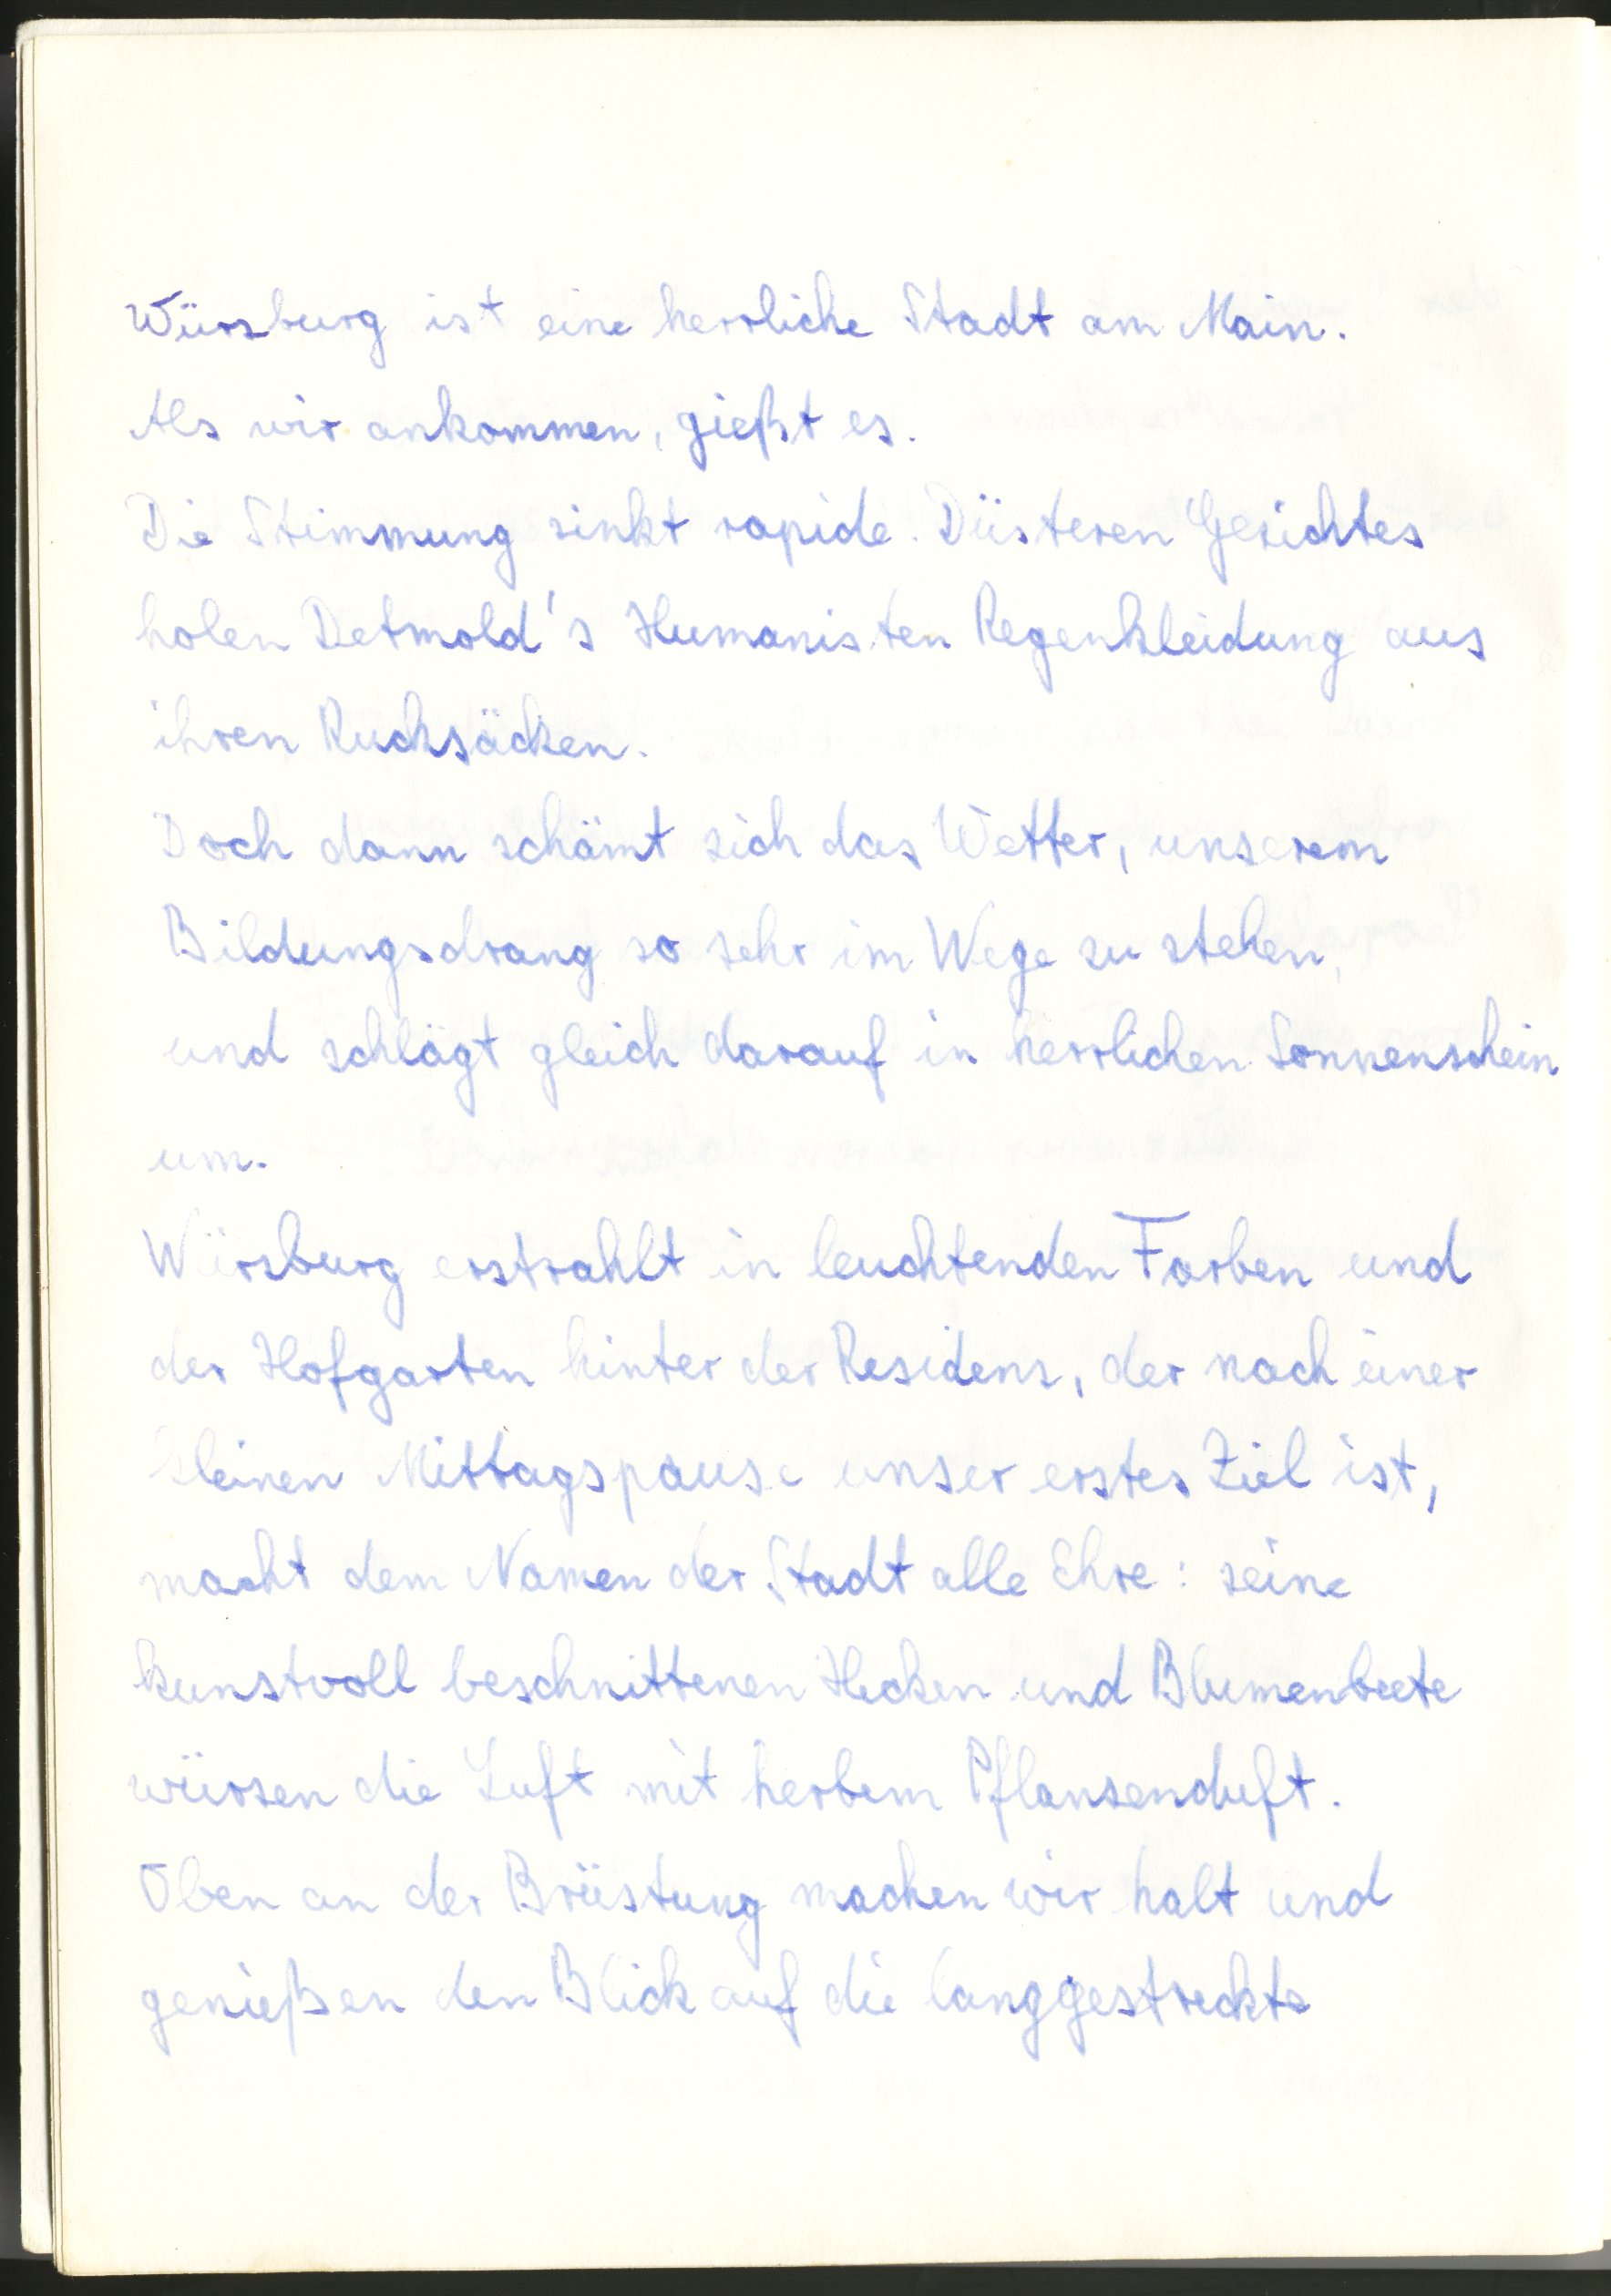 Würzburg ist eine herrliche Stadt am Main.
Als wir ankommen, gießt es.
Die Stimmung sinkt rapide. Düsteren Gesichtes
holen Detmold's Humanisten Regenkleidung aus
ihren Rucksäcken.
Doch dann schämt sich das Wetter, unserem
Bildungsdrang so sehr im Wege zu stehen,
und schlägt gleich darauf in herrlichen Sonnenschein
um.
Würzburg erstrahlt in leuchtenden Farben und
der Hofgarten hinter der Residenz, der nach einer
kleinen Mittagspause unser erstes Ziel ist,
macht dem Namen der Stadt alle Ehre: seine
kunstvoll beschnittenen Hecken und Blumenbeete
würzen die Luft mit herbem Pflanzenduft.
Oben an der Brüstung machen wir halt und
genießen den Blick auf die langgestreckte